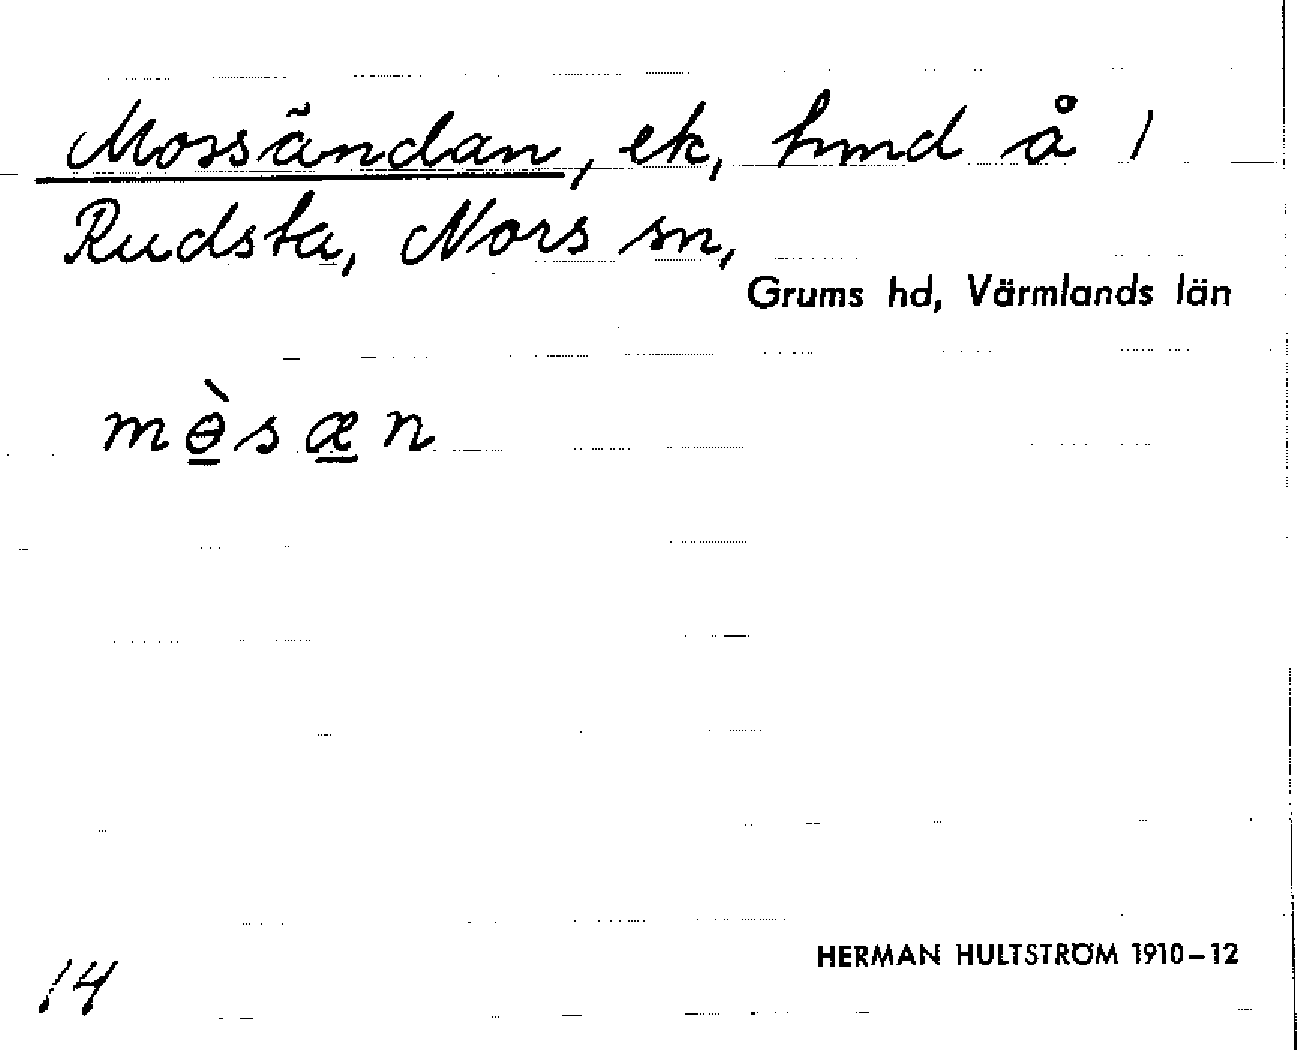 Mossändan, ek, hmd å 1
Rudsta, Nors sn,
Grums hd, Värmlands län
mɵ̠̀sæ̠n
14
HERMAN HULTSTRÖM 1910–12